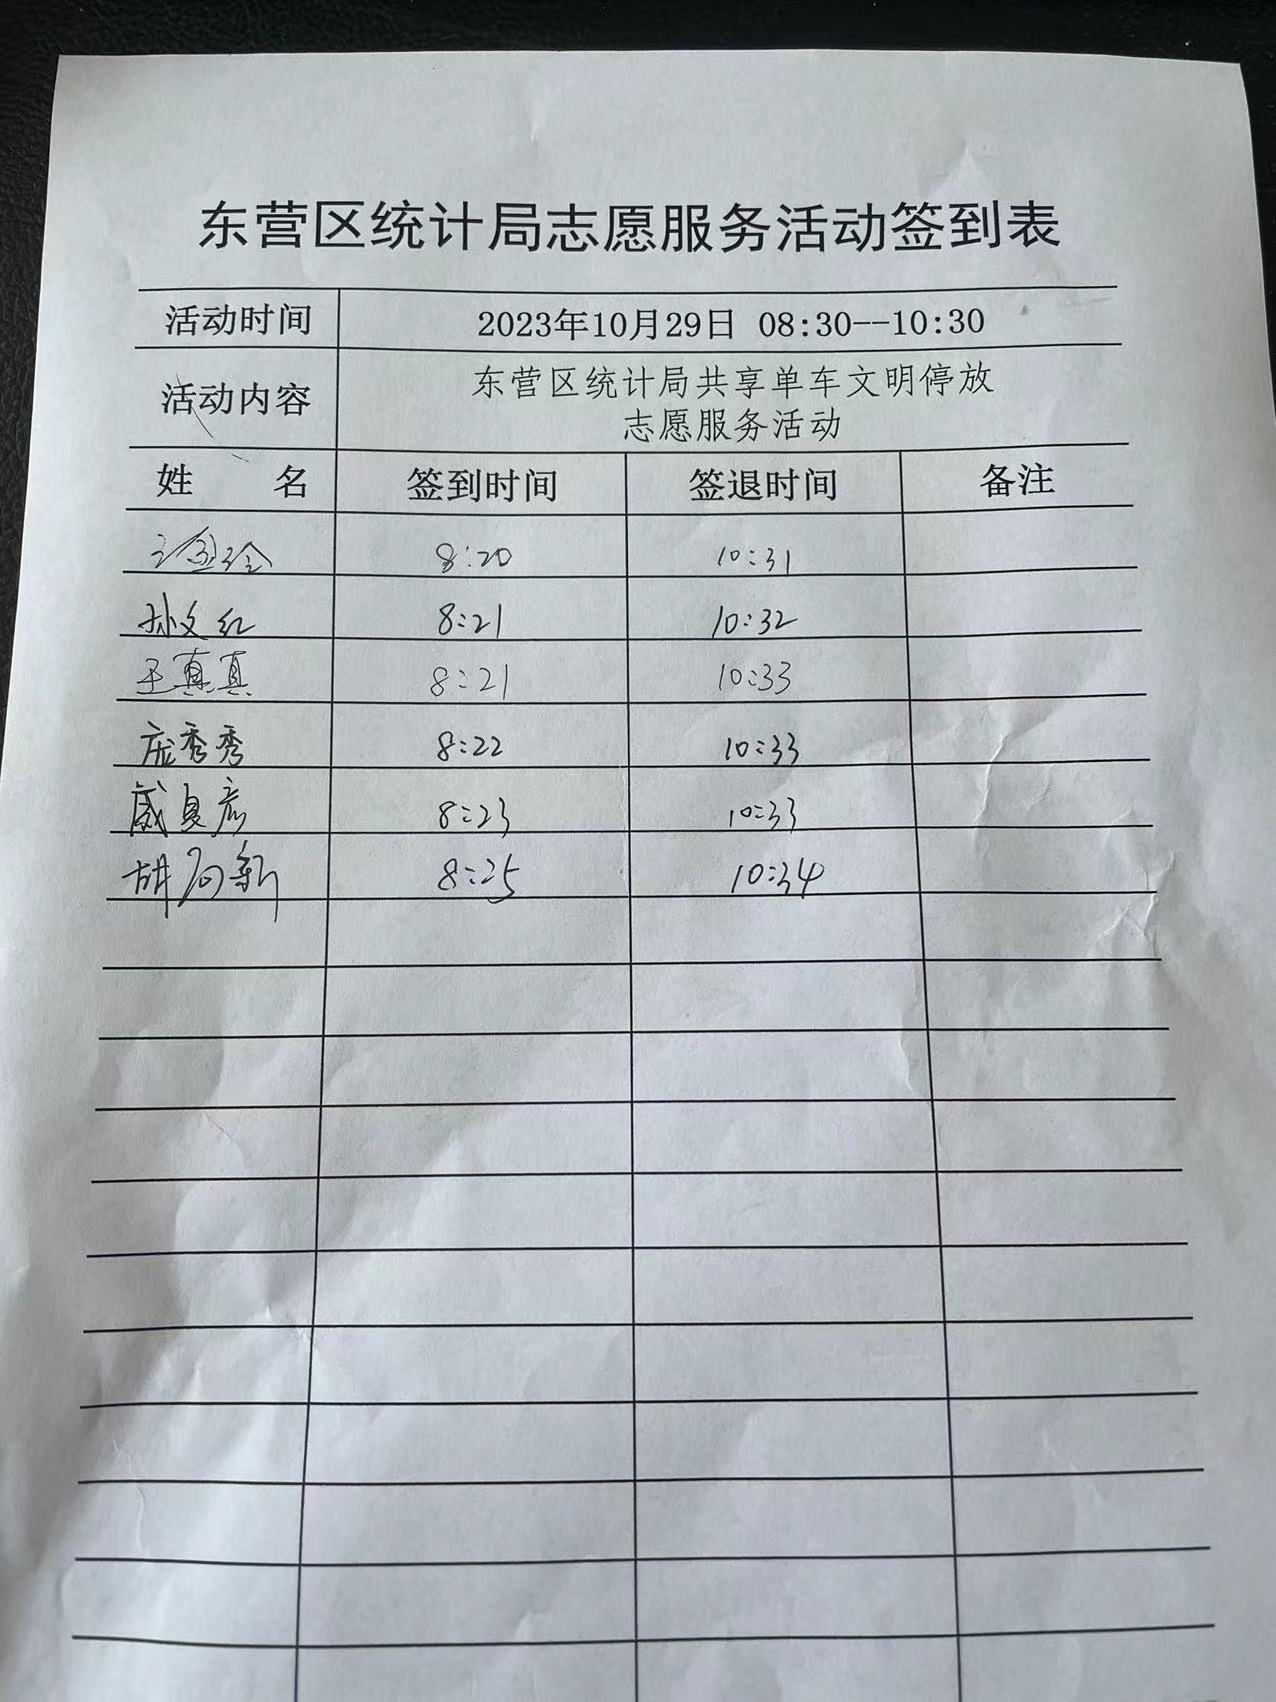 东营区统计局志愿服务活动签到表
活动时间 2023年10月29日 08:30--10:30
活动内容 东营区统计局共享单车文明停放
志愿服务活动
姓 名 签到时间 签退时间 备注
8:20 10:31
孙文红 8:21 10:32
王真真 8:21 10:33
庞秀秀 8:22 10:33
8:23 10:33
胡向新 8:25 10:34